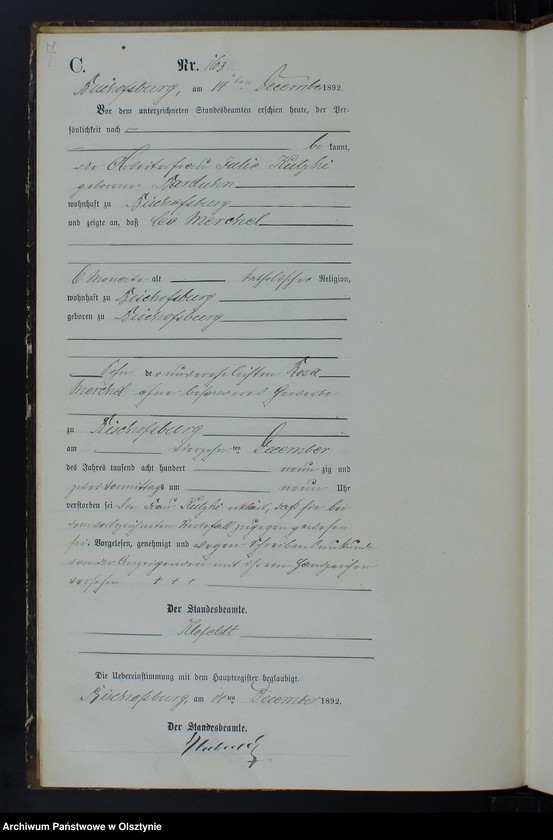 C. Nr. 163
Bischofsburg, am 14ten December 1892.
Vor dem unterzeichneten Standesbeamten erschien heute, der Per-
sönlichkeit nach
be kannt,
die Arbeiterfrau Julie
geborene Barduhn
wohnhaft zu Bischofsburg
und zeigte an, daß Leo Merchel
6 Monate alt katholischer Religion,
wohnhaft zu Bischofsburg
geboren zu Bischofsburg
Sohn der unverehelichten Rosa
Merchel ohne besonderes Gewerbe
zu Bischofsburg
am vierzehnten December
des Jahres tausend acht hundert neun zig und
zwei Vormittags um neun Uhr
verstorben sei die Frau erklärt, daß sie bei
dem vorbezeichneten Sterbefall zugegen gewesen
sei. Vorgelesen, genehmigt und wegen Schreibensunkunde
von der Anzeigenden mit ihrem Handzeichen
versehen + + +
Der Standesbeamte.
Die Uebereinstimmung mit dem Hauptregister beglaubigt.
Bischofsburg, am 14ten December 1892.
Der Standesbeamte.
Archiwum Państwowe w Olsztynie